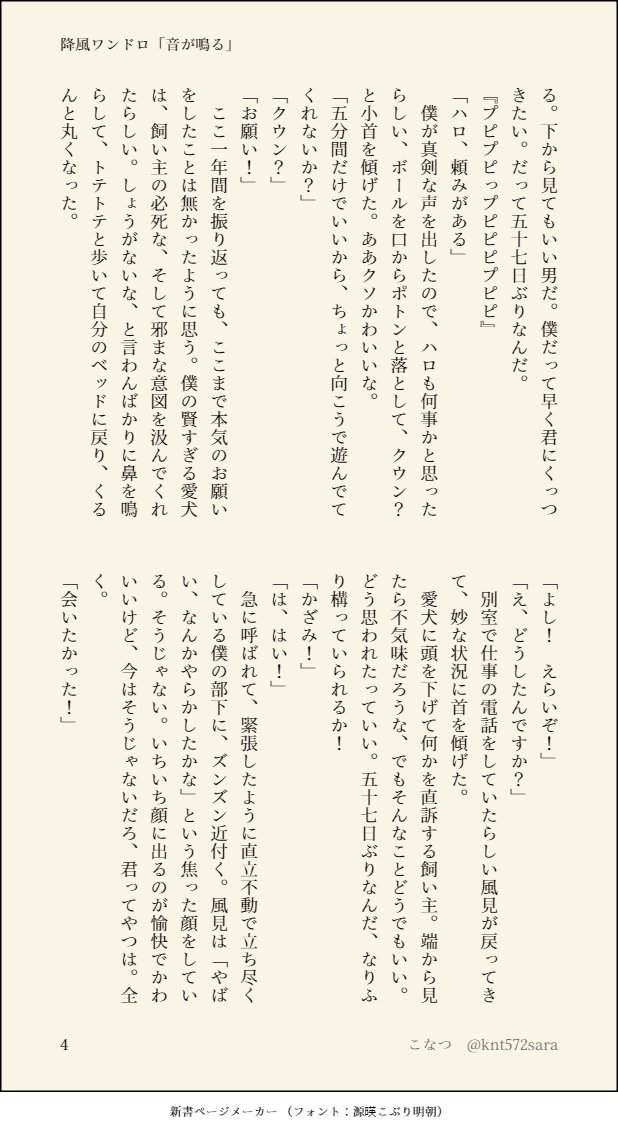 降風ワンドロ「音が鳴る」
る。下から見てもいい男だ。僕だって早く君にくっつ
きたい。だって五十七日ぶりなんだ。
『プピプピっプピピピプピピ』
「ハロ、頼みがある」
　僕が真剣な声を出したので、ハロも何事かと思った
らしい、ボールを口からポトンと落として、クウン？
と小首を傾げた。ああクソかわいいな。
「五分間だけでいいから、ちょっと向こうで遊んでて
くれないか？」
「クウン？」
「お願い！」
　ここ一年間を振り返っても、ここまで本気のお願い
をしたことは無かったように思う。僕の賢すぎる愛犬
は、飼い主の必死な、そして邪まな意図を汲んでくれ
たらしい。しょうがないな、と言わんばかりに鼻を鳴
らして、トテトテと歩いて自分のベッドに戻り、くる
んと丸くなった。
「よし！　えらいぞ！」
「え、どうしたんですか？」
　別室で仕事の電話をしていたらしい風見が戻ってき
て、妙な状況に首を傾げた。
　愛犬に頭を下げて何かを直訴する飼い主。端から見
たら不気味だろうな、でもそんなことどうでもいい。
どう思われたっていい。五十七日ぶりなんだ、なりふ
り構っていられるか！
「かざみ！」
「は、はい！」
　急に呼ばれて、緊張したように直立不動で立ち尽く
している僕の部下に、ズンズン近付く。風見は「やば
い、なんかやらかしたかな」という焦った顔をしてい
る。そうじゃない。いちいち顔に出るのが愉快でかわ
いいけど、今はそうじゃないだろ、君ってやつは。全
く。
「会いたかった！」
4
こなつ　@knt572sara
新書ページメーカー（フォント：源暎こぶり明朝）